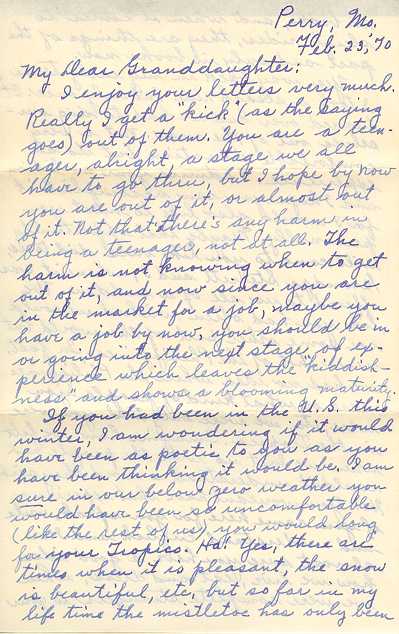 Perry, Mo.
Feb. 23, '70
My Dear Granddaughter:
I enjoy your letters very much.
Really I get a "kick" (as the saying
goes) out of them. You are a teen-
ager, alright, a stage we all
have to go thru, but I hope by now
you are out of it, or almost out
of it. Not that there's any harm in
being a teenager, not at all. The
harm is not knowing when to get
out of it, and now since you are
in the market for a job, maybe you
have a job by now, you should be in
or going into the next stage of ex-
perience which leaves the "kiddish-
ness" and shows a blooming maturity.
If you had been in the U.S. this
winter, I am wondering if it would
have been as poetic to you as you
have been thinking it would be. I am
sure in our below zero weather you
would have been so uncomfortable
(like the rest of us) you would long
for your Tropics. Ha! Yes, there are
times when it is pleasant, the snow
is beautiful, etc. but so far in my
life time the mistletoe has only been